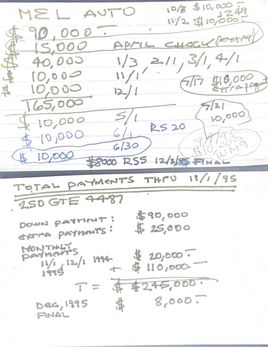 MEL AUTO
10/3 $10,000
11/2 $10,000
$ 90,000
$ 15,000 APRIL CHECK
$ 40,000 1/3, 2/1, 3/1, 4/1
$ 10,000 11/1
$ 10,000 12/1
7/17 $10,000
165,000
$ 10,000 5/1
7/31
10,000
$ 10,000 6/1
$ 10,000 6/30
$8000 12/2/95 FINAL
TOTAL PAYMENTS THRU 12/1/95
250 GTE 4487
DOWN PAYMENT: $90,000
EXTRA PAYMENTS: $ 25,000
MONTHLY
PAYMENTS
11/1, 12/1 1994 $ 20,000
1995 + $ 110,000
T = $ $245,000
DEC, 1995 $ 8,000
FINAL